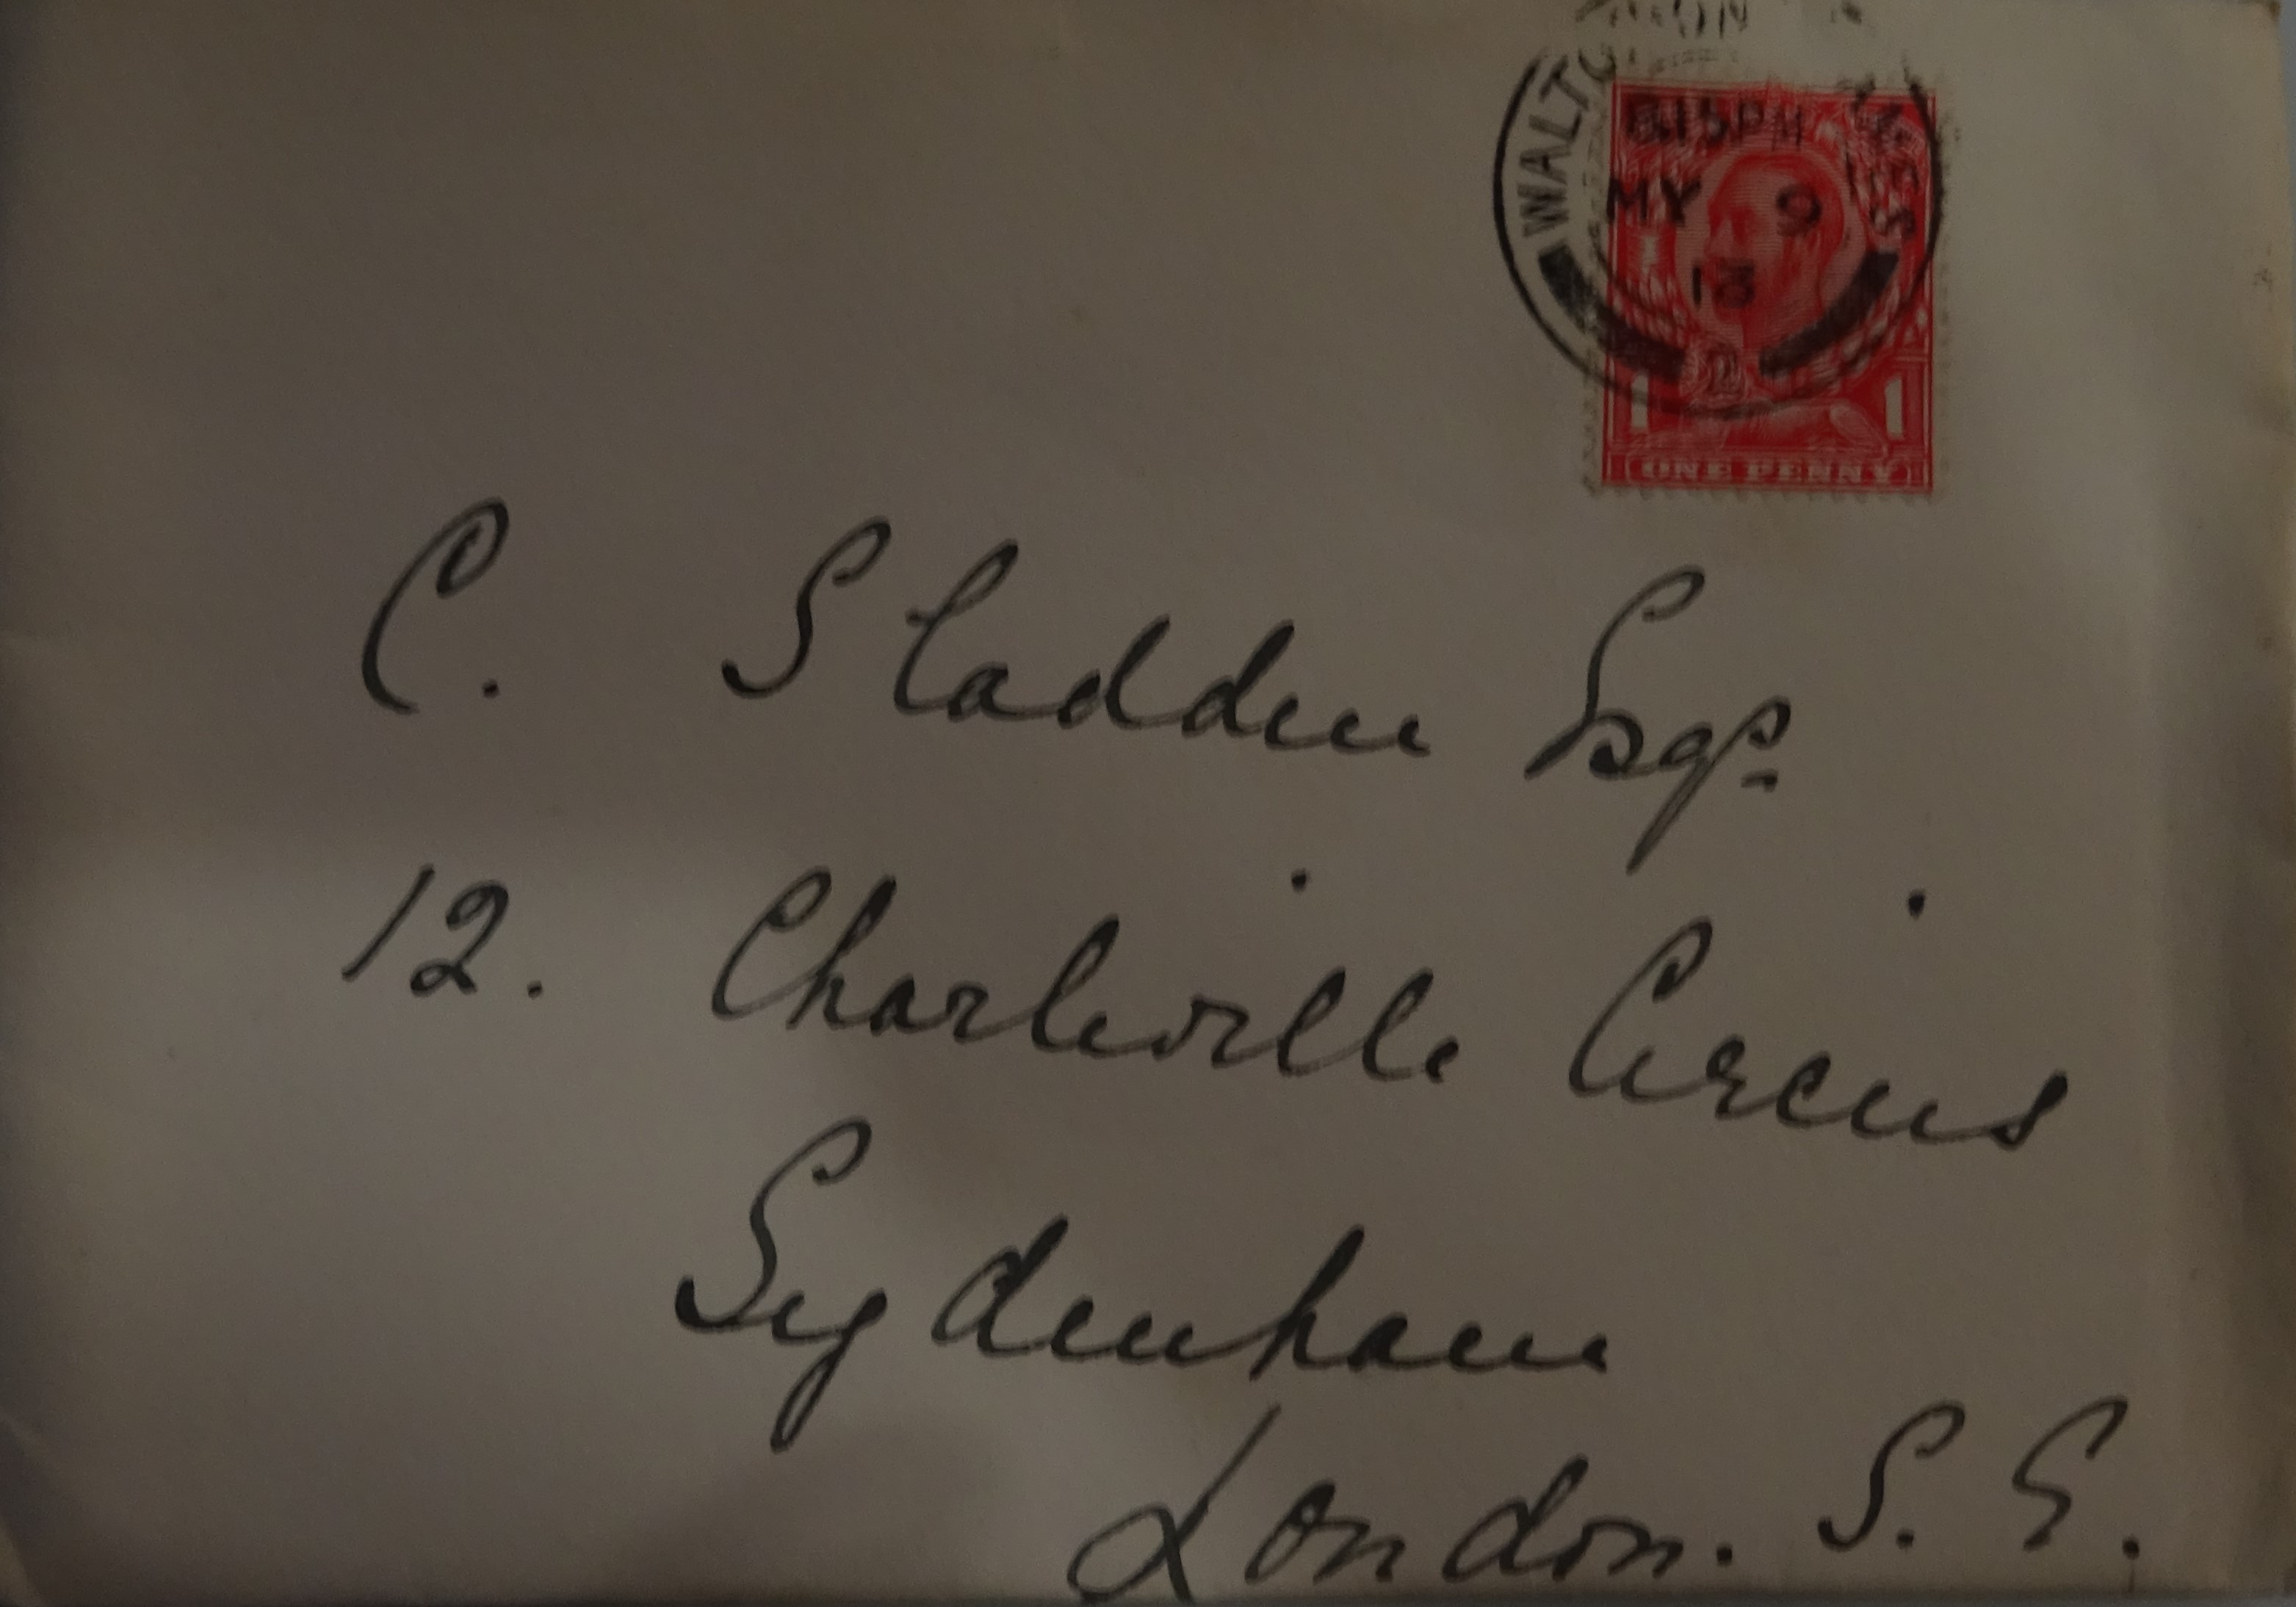 8.15 PM
MY 9
13
1 1
ONE PENNY
C. Sladden Esqr
12. Charleville Circus
Sydenham
London. S. E.